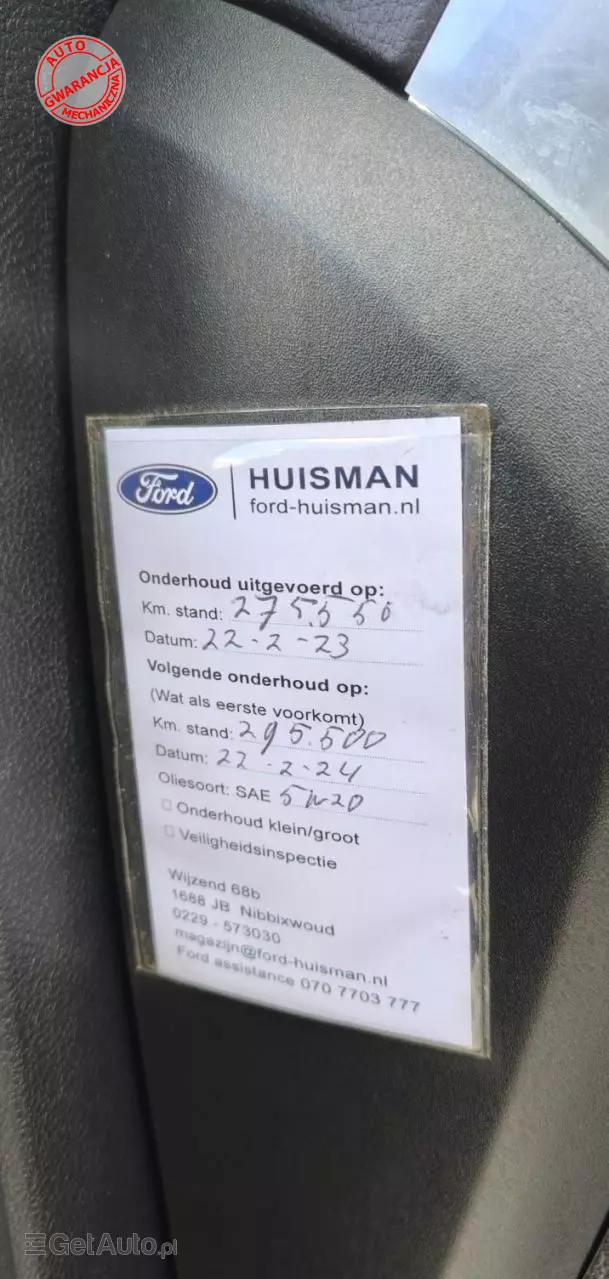 AUTO
GWARANCJA
MECHANICZNA
Ford
HUISMAN
ford-huisman.nl
Onderhoud uitgevoerd op:
Km. stand: 275.550
Datum: 22-2-23
Volgende onderhoud op:
(Wat als eerste voorkomt)
Km. stand: 295.500
Datum: 22-2-24
Oliesoort: SAE 5W20
□ Onderhoud klein/groot
□ Veiligheidsinspectie
Wijzend 68b
1688 JB Nibbixwoud
0229 - 573030
magazijn@ford-huisman.nl
Ford assistance 070 7703 777
GetAuto.pl